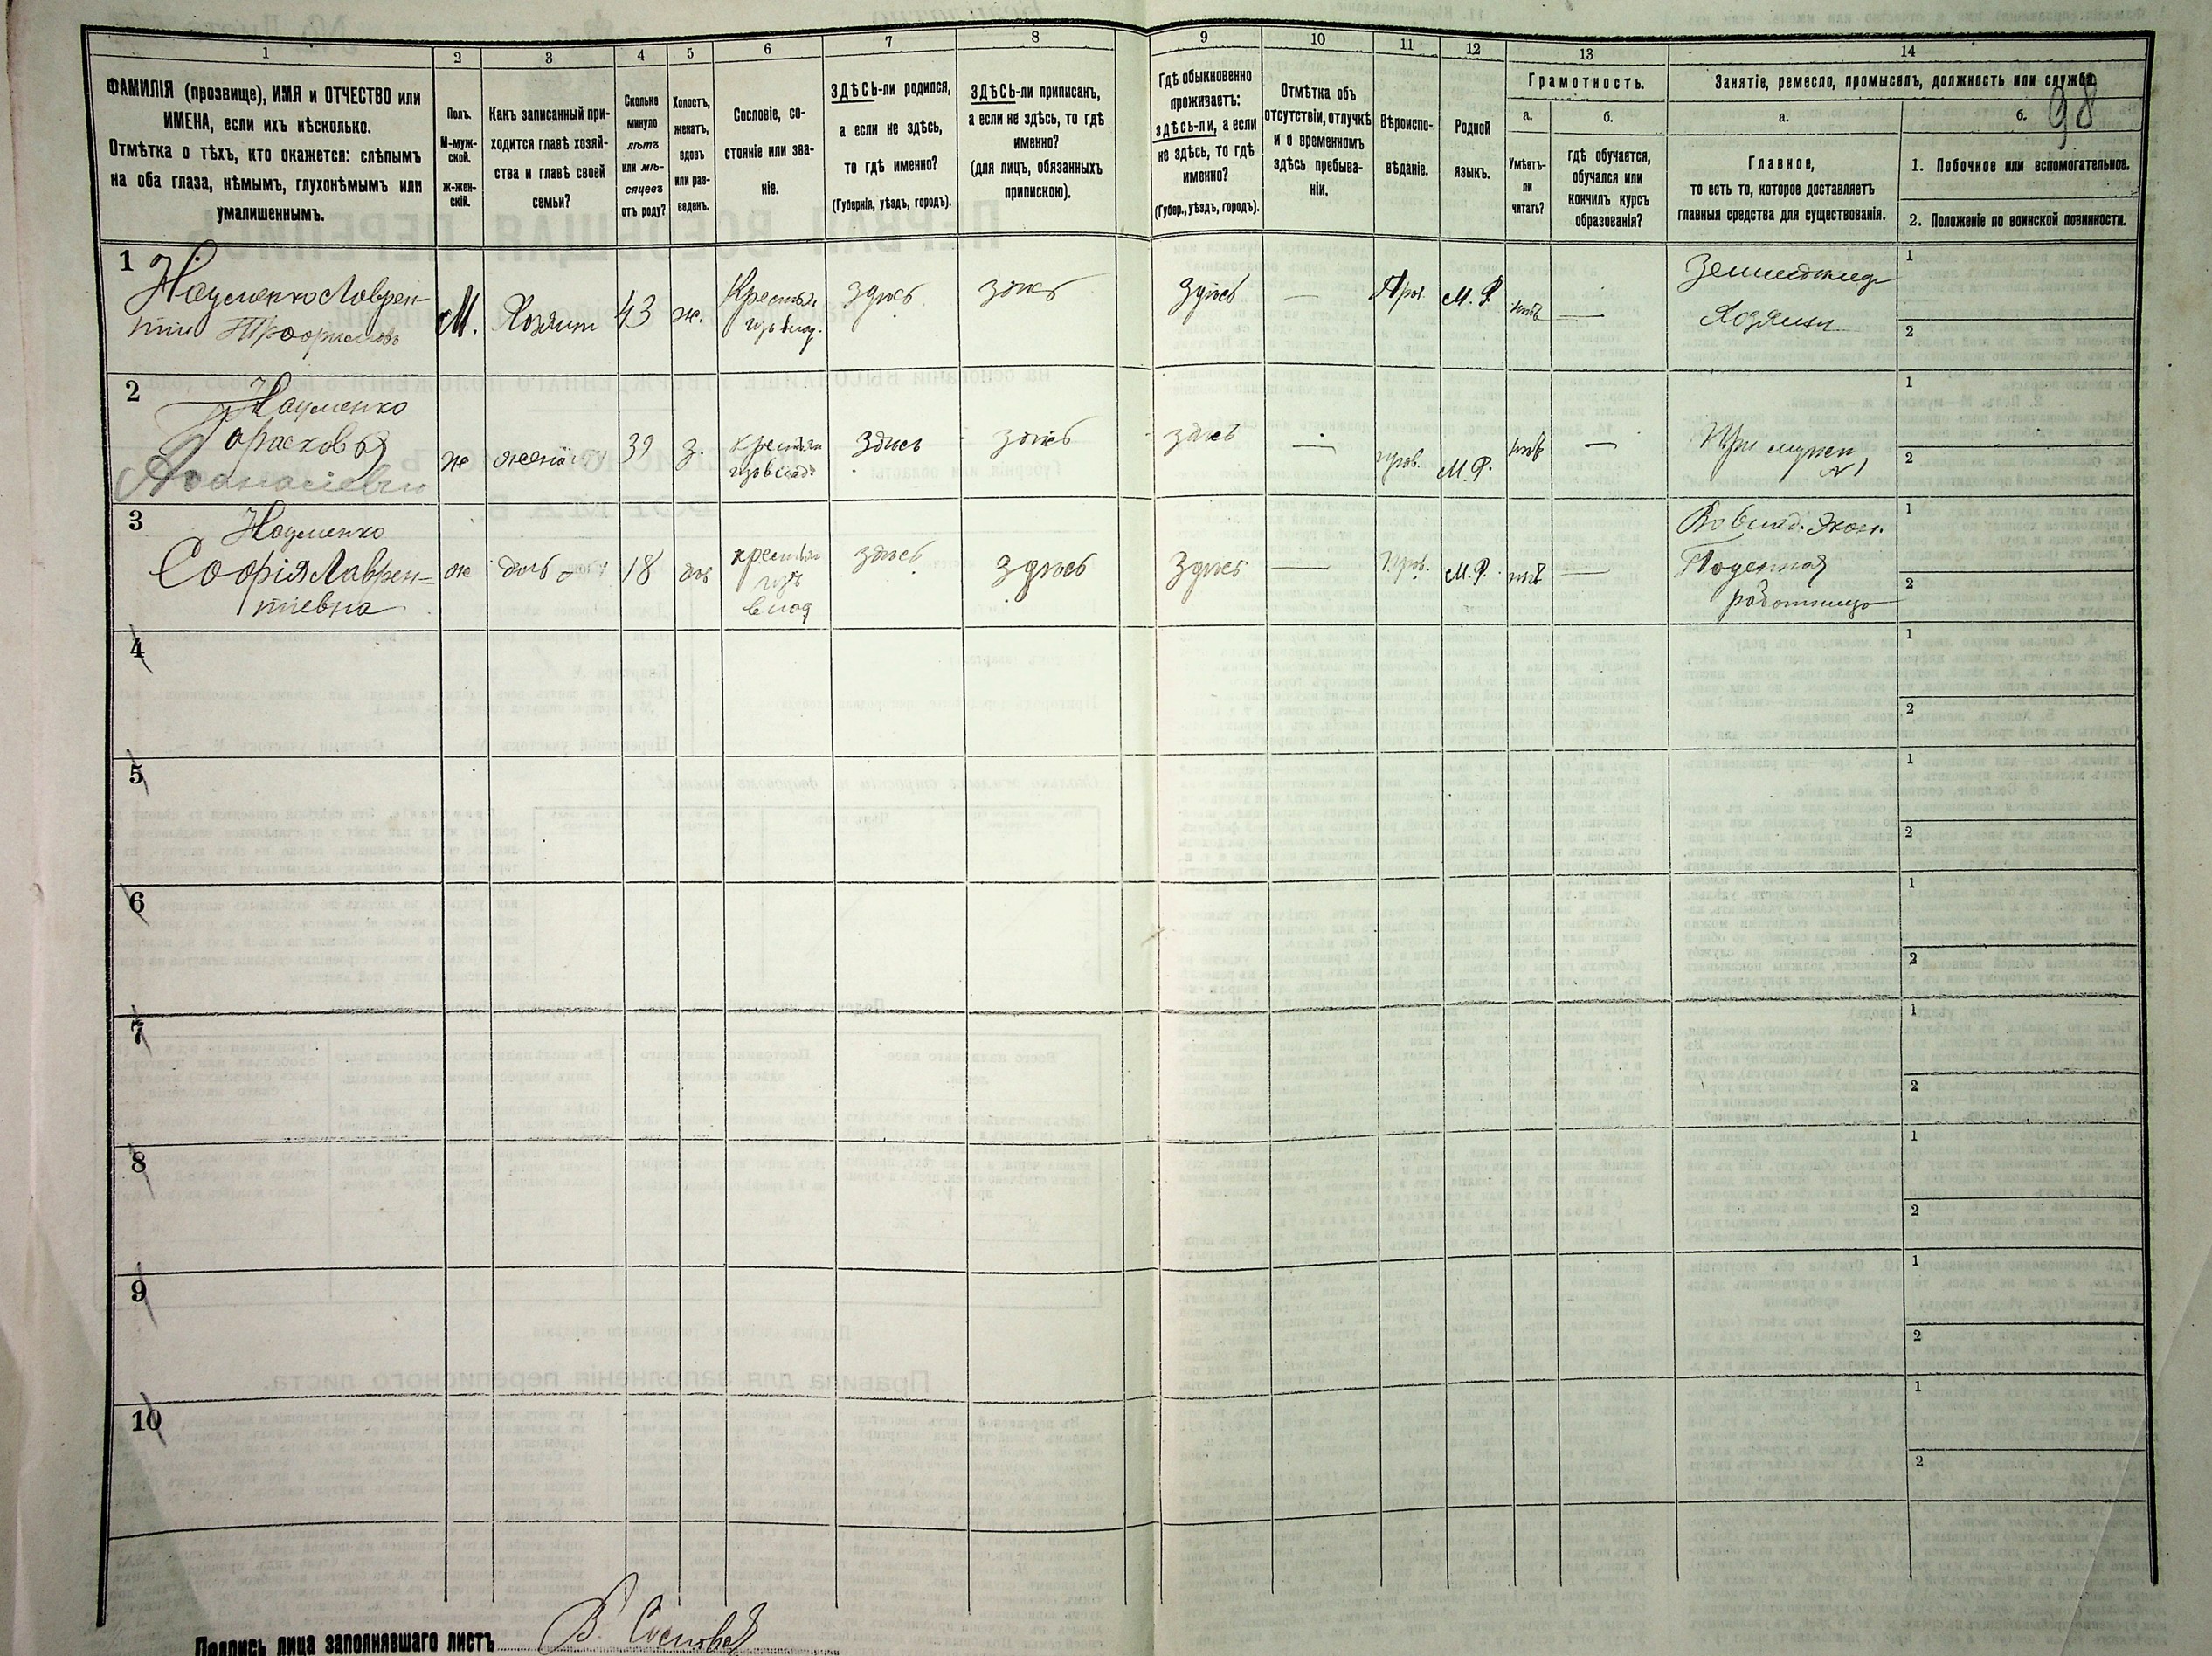 98
1
2
3
4
5
6
7
8
9
10
11
12
13
14
ФАМИЛІЯ (прозвище), ИМЯ и ОТЧЕСТВО или
ИМЕНА, если ихъ нѣсколько.
Отмѣтка о тѣхъ, кто окажется: слѣпымъ
на оба глаза, нѣмымъ, глухонѣмымъ или
умалишеннымъ.
Полъ.
М-муж-
ской.
ж-жен-
скій.
Какъ записанный при-
ходится главѣ хозяй-
ства и главѣ своей
семьи?
Сколько
минуло
лѣтъ
или мѣ-
сяцевъ
отъ роду?
Холостъ,
женатъ,
вдовъ
или раз-
веденъ.
Сословіе, со-
стояніе или зва-
ніе.
ЗДѢСЬ-ли родился,
а если не здѣсь,
то гдѣ именно?
(Губернія, уѣздъ, городъ).
ЗДѢСЬ-ли приписанъ,
а если не здѣсь, то гдѣ
именно?
(для лицъ, обязанныхъ
припискою).
Гдѣ обыкновенно
проживаетъ:
здѣсь-ли, а если
не здѣсь, то гдѣ
именно?
(Губер., уѣздъ, городъ).
Отмѣтка объ
отсутствіи, отлучкѣ
и о временномъ
здѣсь пребыва-
ніи.
Вѣроиспо-
вѣданіе.
Родной
языкъ.
Грамотность.
а.
Умѣетъ-
ли
читать?
б.
гдѣ обучается,
обучался или
кончилъ курсъ
образованія?
Занятіе, ремесло, промыселъ, должность или служба.
а.
Главное,
то есть то, которое доставляетъ
главныя средства для существованія.
б.
1. Побочное или вспомогательное.
2. Положеніе по воинской повинности.
1
Науменко Лаврен-
тій Трофимовъ
М.
Хозяин
43
ж.
Крестьян
изъ влад.
здѣсь
здѣсь
здѣсь
—
Прав.
М. Р.
нѣтъ
—
Земледѣлец
Хозяинъ
1
2
2
Науменко
Парасковья
Афанасіевн
ж
жена
39
з.
крестьян
изъ влад.
здѣсь
здѣсь
здѣсь
—
прав.
М.Р.
нѣт
—
При мужѣ
1
2
3
Науменко
Софія Лаврен=
тіевна
ж
дочь
18
дѣв
крестьян
изъ
влад
здѣсь
здѣсь
здѣсь
—
Прав.
М.Р.
нѣт
—
Во влад. экон.
Поденная
работница
1
2
4
1
2
5
1
2
6
1
2
7
1
2
8
1
2
9
1
2
10
1
2
Подпись лица заполнявшаго листъ